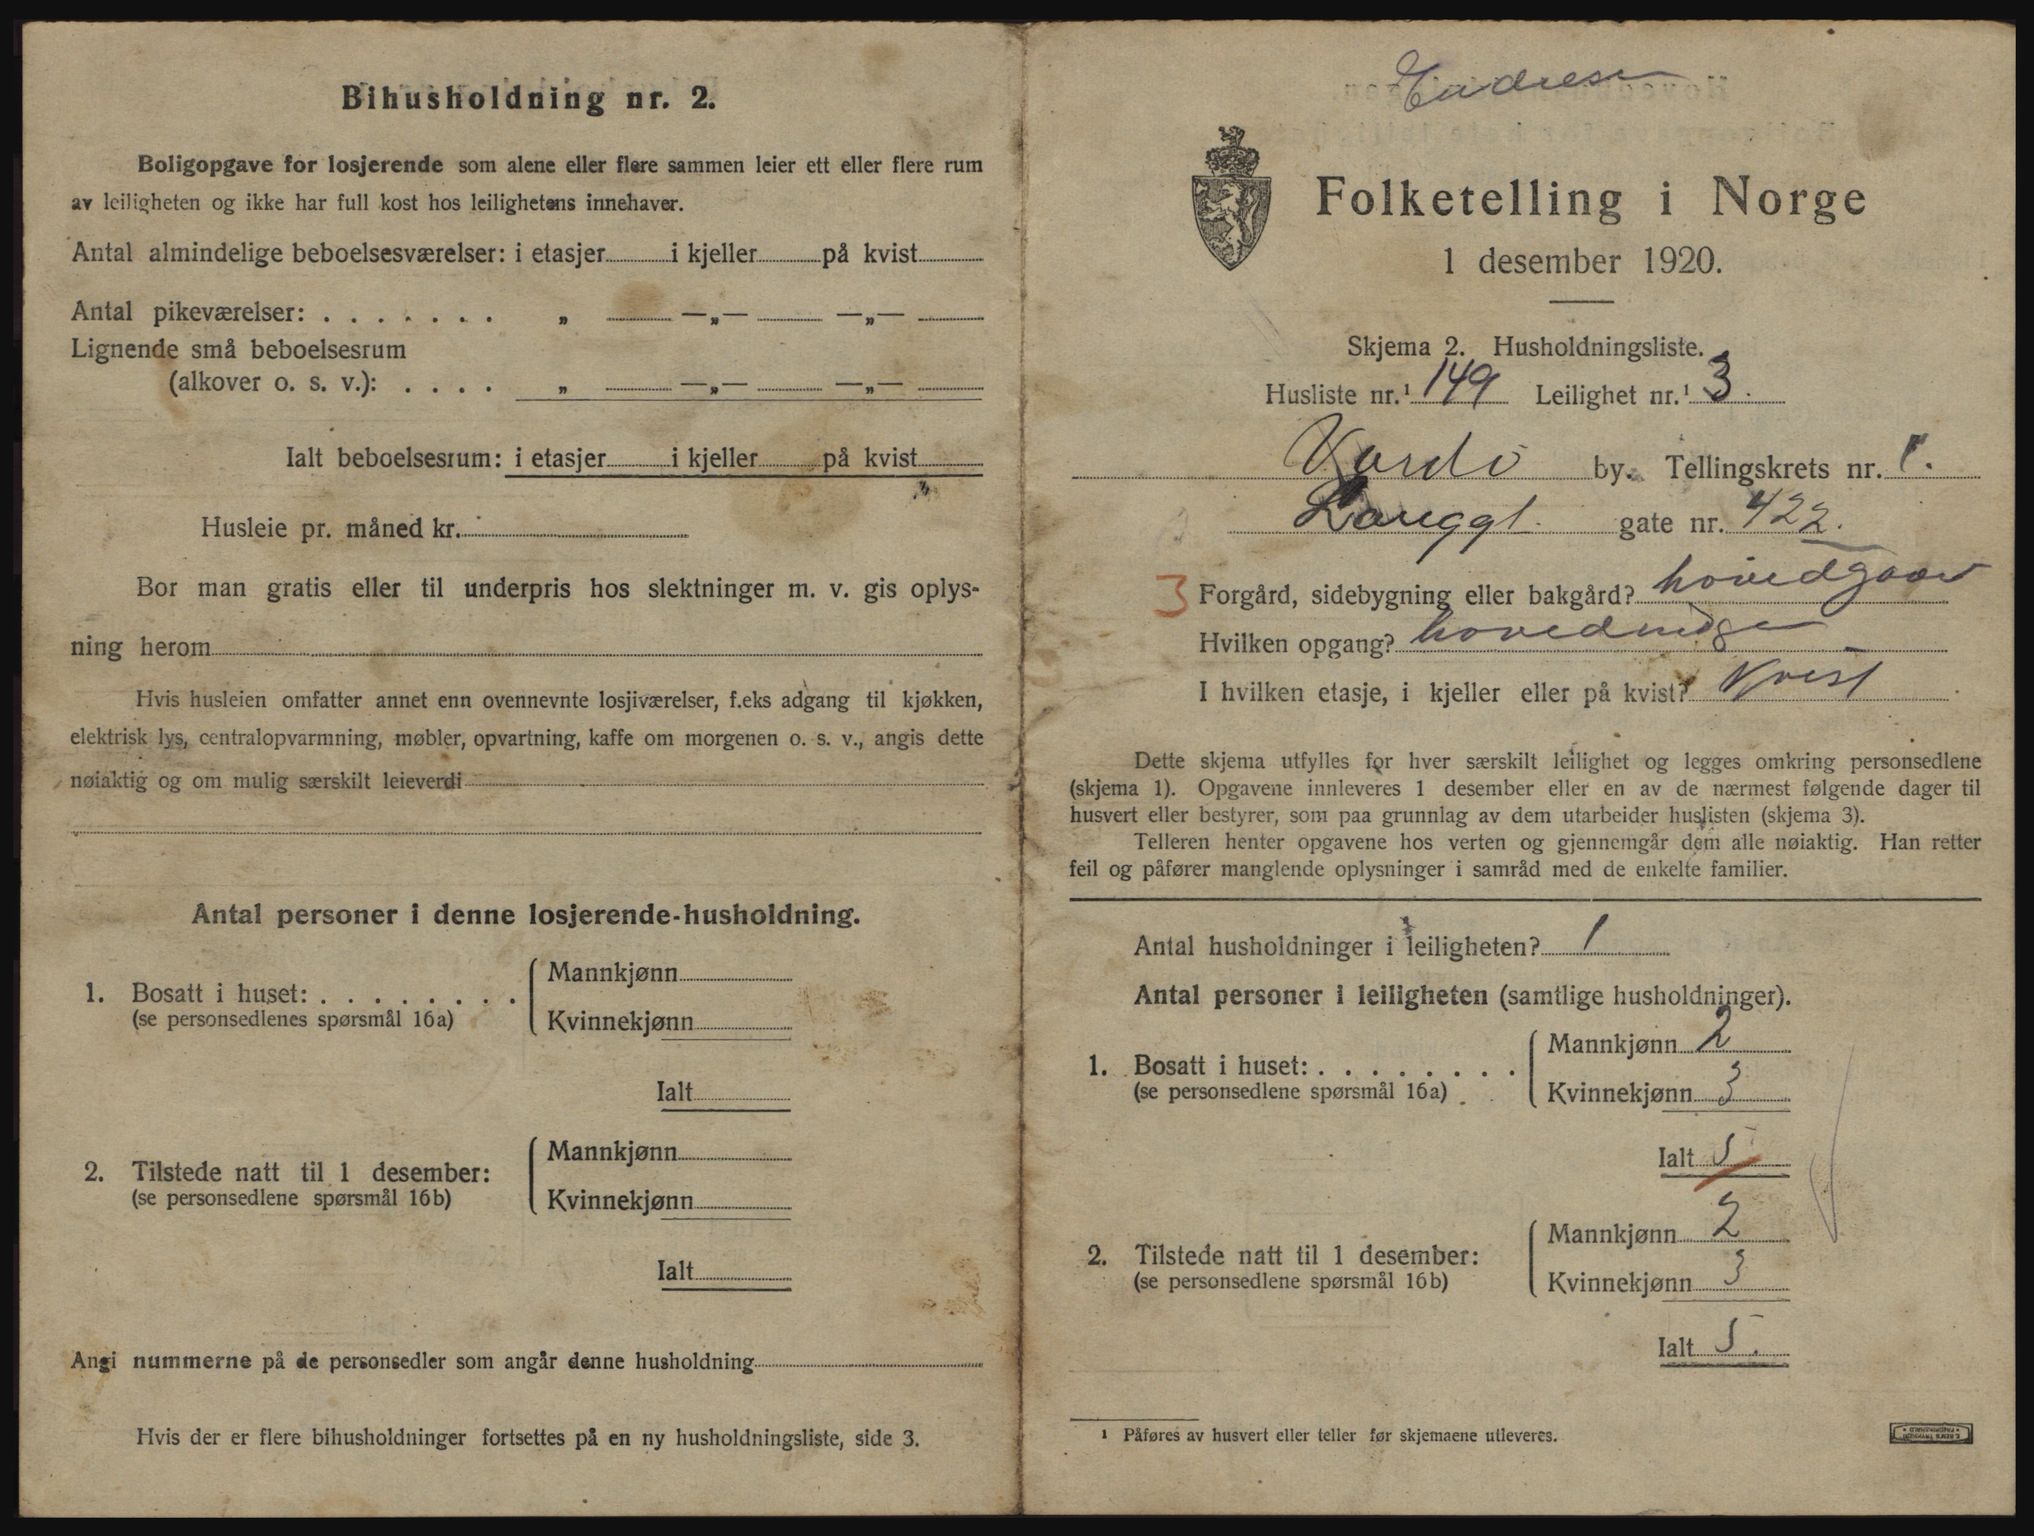 Bihusholdning nr. 2.
Boligopgave for losjerende som alene eller flere sammen leier ett eller flere rum
av leiligheten og ikke har full kost hos leilighetens innehaver.
Antal almindelige beboelsesværelser: i etasjer i kjeller på kvist
Antal pikeværelser: . . . . . . . „ —„— —„—
Lignende små beboelsesrum
(alkover o. s. v.): . . . . „ —„— —„—
Ialt beboelsesrum: i etasjer i kjeller på kvist
Husleie pr. måned kr.
Bor man gratis eller til underpris hos slektninger m. v. gis oplys-
ning herom
Hvis husleien omfatter annet enn ovennevnte losjiværelser, f.eks adgang til kjøkken,
elektrisk lys, centralopvarmning, møbler, opvartning, kaffe om morgenen o. s. v., angis dette
nøiaktig og om mulig særskilt leieverdi
Antal personer i denne losjerende-husholdning.
1. Bosatt i huset: . . . . . . . .
(se personsedlenes spørsmål 16a)
Mannkjønn
Kvinnekjønn
Ialt
2. Tilstede natt til 1 desember:
(se personsedlene spørsmål 16b)
Mannkjønn
Kvinnekjønn
Ialt
Angi nummerne på de personsedler som angår denne husholdning
Hvis der er flere bihusholdninger fortsettes på en ny husholdningsliste, side 3.
Endresen
Folketelling i Norge
1 desember 1920.
Skjema 2. Husholdningsliste.
Husliste nr.¹ 149 Leilighet nr.¹ 3.
Vardö by. Tellingskrets nr. 1.
Langgt. gate nr. 422.
3 Forgård, sidebygning eller bakgård? hovedgaar
Hvilken opgang?
I hvilken etasje, i kjeller eller på kvist? Kvist
Dette skjema utfylles for hver særskilt leilighet og legges omkring personsedlene
(skjema 1). Opgavene innleveres 1 desember eller en av de nærmest følgende dager til
husvert eller bestyrer, som paa grunnlag av dem utarbeider huslisten (skjema 3).
Telleren henter opgavene hos verten og gjennemgår dem alle nøiaktig. Han retter
feil og påfører manglende oplysninger i samråd med de enkelte familier.
Antal husholdninger i leiligheten? 1
Antal personer i leiligheten (samtlige husholdninger).
1. Bosatt i huset: . . . . . . . .
(se personsedlene spørsmål 16a)
Mannkjønn 2
Kvinnekjønn 3
Ialt 5
2. Tilstede natt til 1 desember:
(se personsedlene spørsmål 16b)
Mannkjønn 2
Kvinnekjønn 3
Ialt 5.
¹ Påføres av husvert eller teller før skjemaene utleveres.